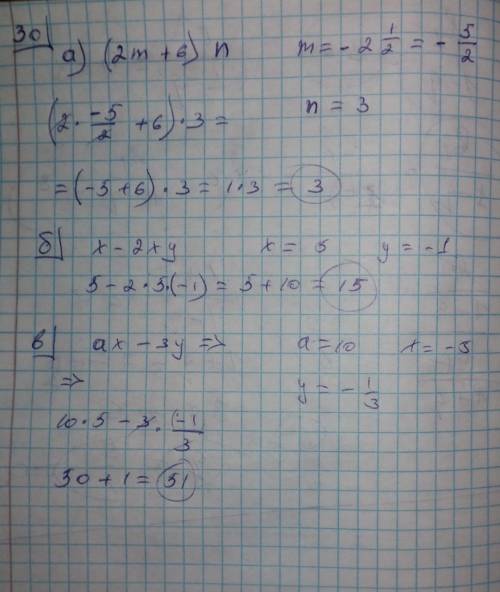 30|
а) (2m+6) n m = - 2 1/2 = - 5/2
(2 · -5/2 + 6) · 3 = n = 3
= (-5+6) · 3 = 1·3 = 3
б| x - 2xy x = 5 y = -1
5 - 2·5·(-1) = 5+10 = 15
в| ax - 3y => a = 10 x = -5
=> y = - 1/3
10·5 - 3 · (-1/3
50 + 1 = 51